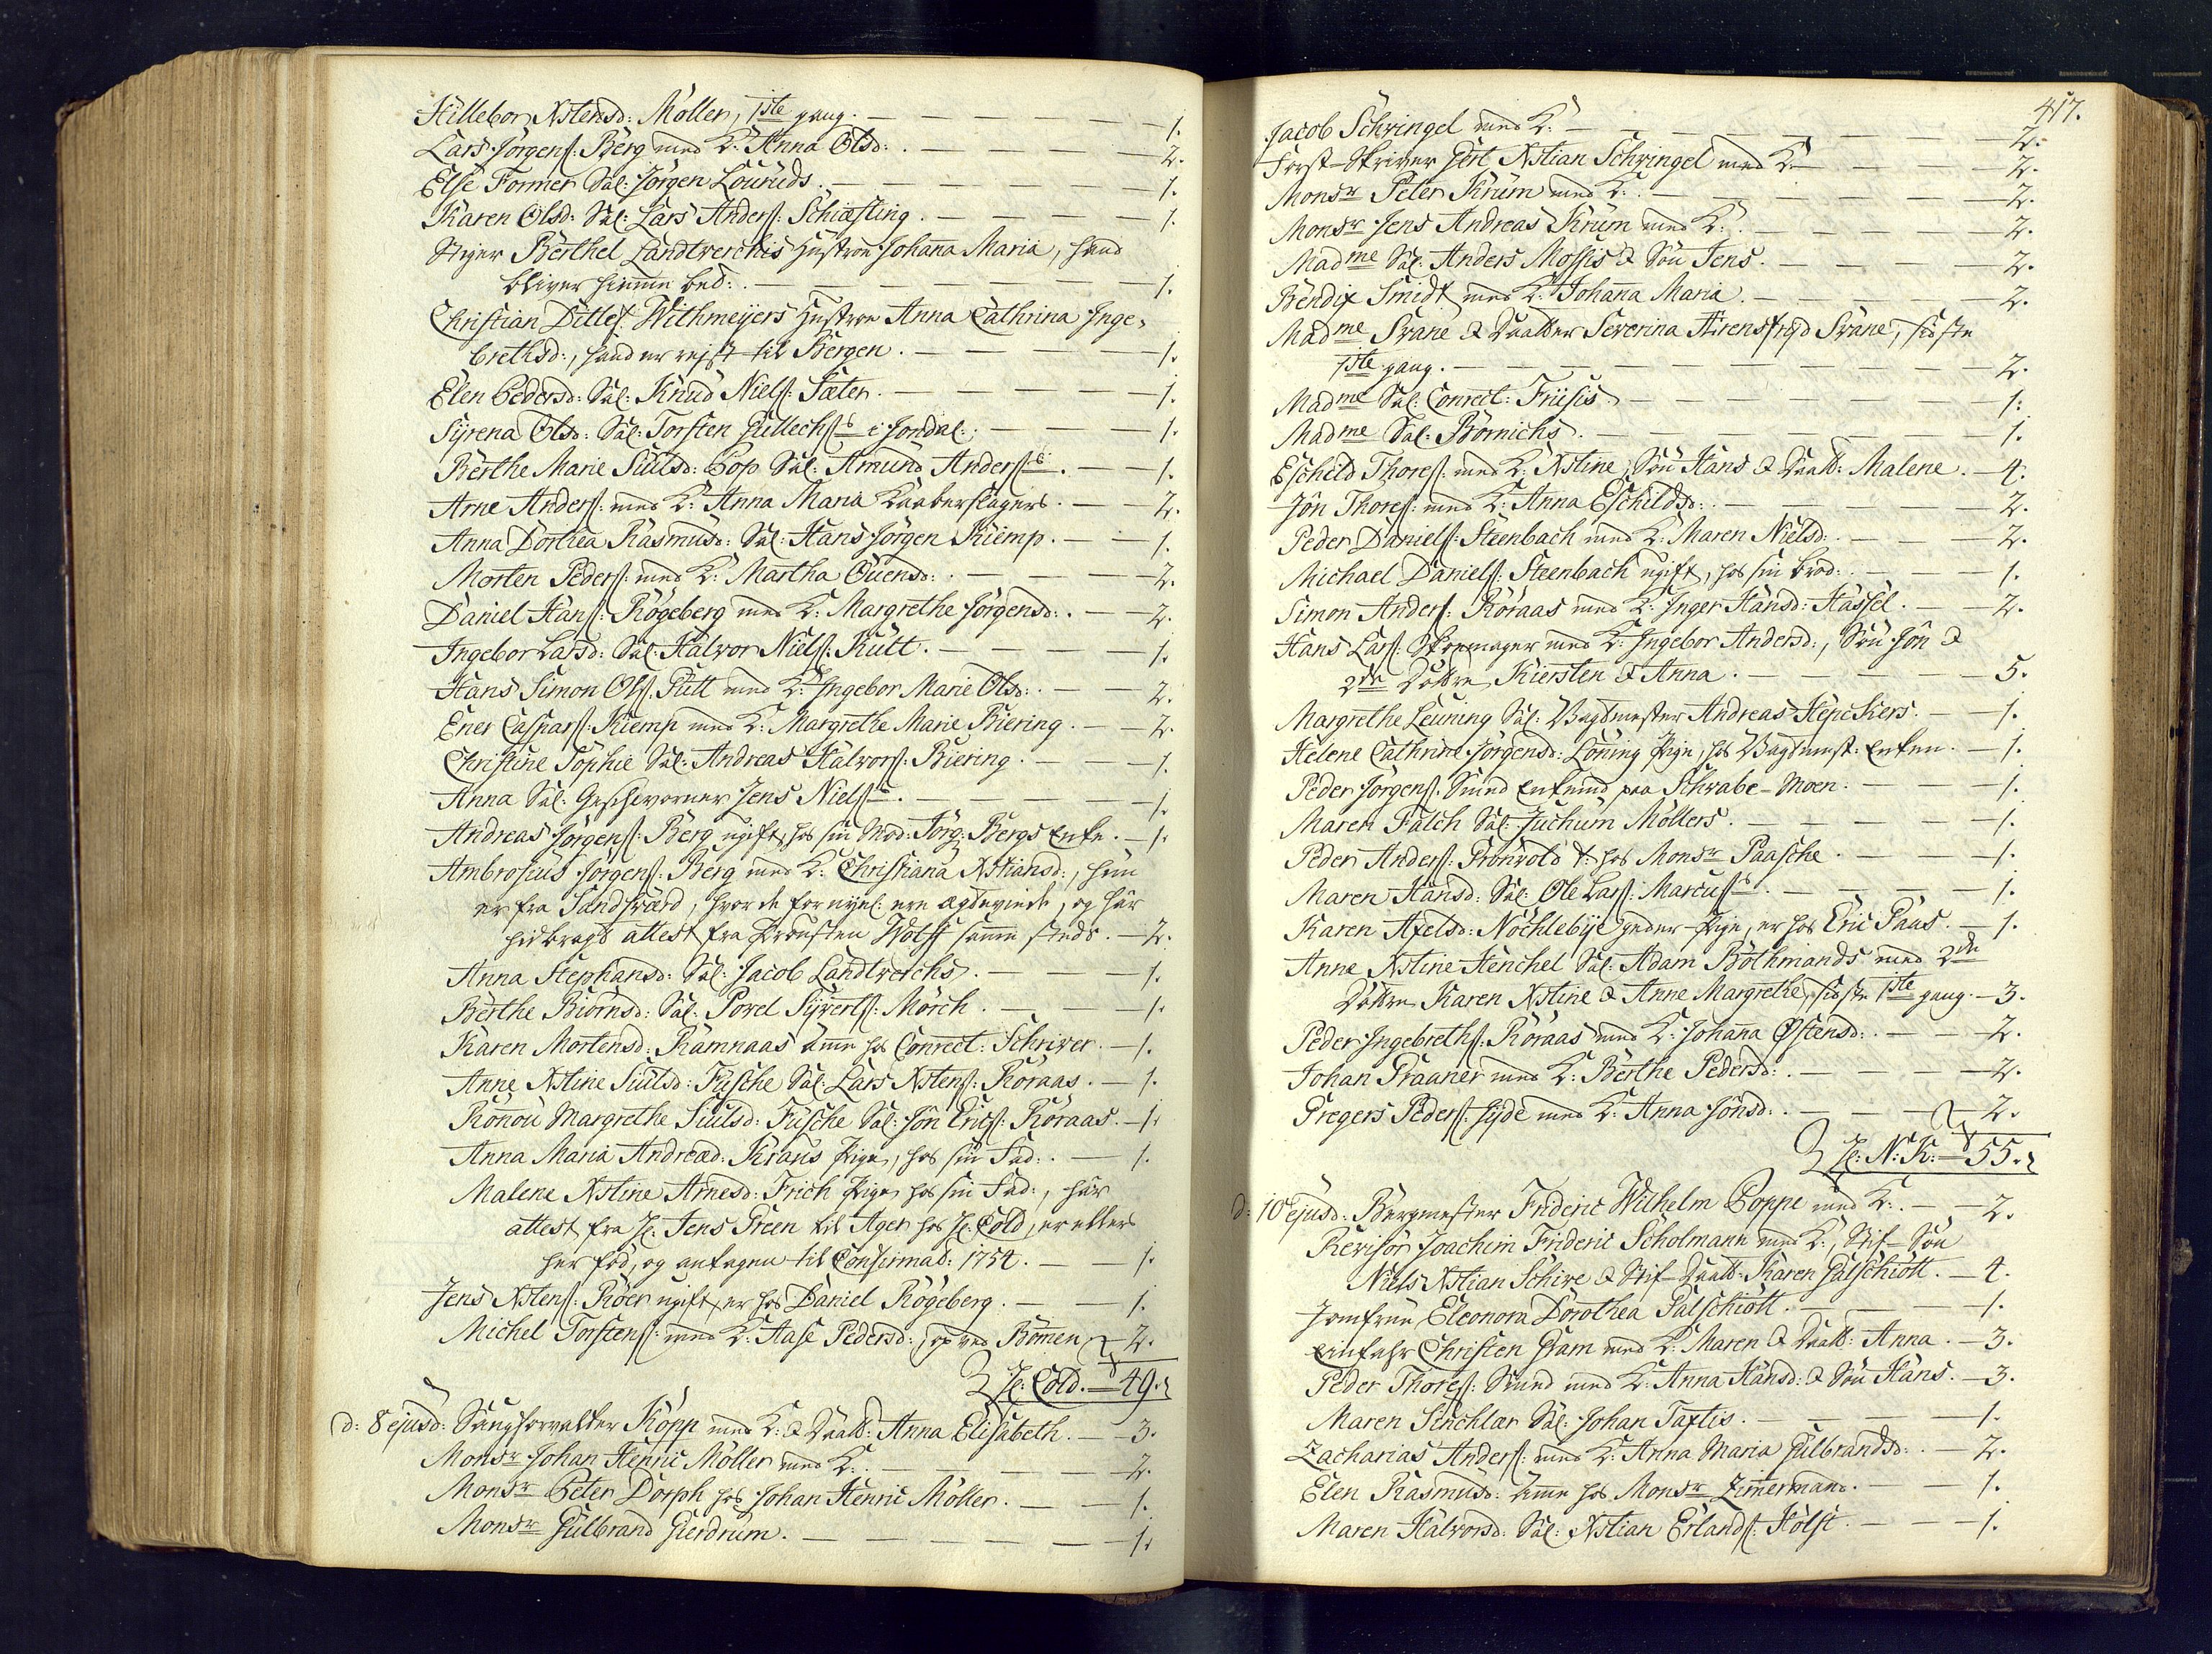 Hillebor Xstensd: Möller, 1ste gang. — 1.
Lars Jörgens: Berg med K: Anna Olsd: — 2.
Else Former Sal: Jörgen Louruds. — 1.
Karen Olsd: Sal: Lars Anders: Schiæfting. — 1.
Stiger Berthel Landtverchis Hustroe Johanna Maria, hand
bliver hiemme bed: — 1.
Christian Ditlef Withmeijers Hustroe Anna Cathrina Inge-
brethsd:, hand er rejst til Bergen. — 1.
Elen Pedersd: Sal: Knud Niels: Sæter. — 1.
Sÿrena Olsd: Sal: Torsten Gullechs: i Jondal. — 1.
Berthe Marie Siulsd: Pop Sal: Amund Anders: — 1.
Arne Anders: med K: Anna Maria Kaaberslagers. — 2.
Anna Dorthea Rasmusd: Sal: Hans Jörgen Kiemp. — 1.
Morten Peders: med K: Martha Ouensd: — 2.
Daniel Hans: Rögeberg med K: Margrethe Jörgensd: — 2.
Ingebor Larsd: Sal: Halvor Niels: Kutt. — 1.
Hans Simon Ols: Putt med K: Ingebor Marie Olsd: — 2.
Ener Caspars: Kiemp med K: Margrethe Marie Biering. — 2.
Christine Sophie Sal: Andreas Halvors: Biering. — 1.
Anna Sal: Geschworner Jens Niels: — 1.
Andreas Jörgens: Berg ugift, hos sin Mod: Jörg: Bergs Enke. — 1.
Ambrosius Jörgens: Berg med K: Christiana Xstiansd:, hun
er fra Sandsværd, hvor de fornyel: ere ægteviede, og har
hidbragt attest fra Prousten Wolff samme steds. — 2.
Anna Stephansd: Sal: Jacob Landtverchs. — 1.
Berthe Biörnsd: Sal: Povel Sÿverts: Mörch. — 1.
Karen Mortensd: Ramnaas Amme hos Conrect: Schriver. — 1.
Anne Xstine Siulsd: Fusche Sal: Lars Xstens: Röraas. — 1.
Rönnou Margrethe Siulsd: Fusche Sal: Jön Erics: Röraas. — 1.
Anna Maria Andread: Kraus Pige, hos sin Fad: — 1.
Malene Xstine Arnesd: Frich Pige hos sin Fad:, har
attest fra Hr: Jens Green til Ager hos Hr: Cold, er ellers
her föd, og antagen til Confirmad: 1754. — 1.
Jens Xstens: Röer ugift, er hos Daniel Rögeberg. — 1.
Michel Torstens: med K: Aase Pedersd:, op ved Bommen — 2.
Hr: Cold. — 49.
d: 8 ejusd: Saugforvalter Köpp med K: & Daatt: Anna Elisabeth. — 3.
Monsr Johan Henric Möller med K: — 2.
Monsr Peter Dorph hos Johan Henric Möller. — 1.
Monsr Gulbrand Gierdrum. — 1.
417.
Jacob Schringel med K: — 2.
Forst-Skriver Gert Xstian Schringel med K: — 2.
Monsr Peter Krum med K: — 2.
Monsr Jens Andreas Krum med K: — 2.
Madme Sal: Anders Mossis & Sön Jens. — 2.
Bendix Smidt med K: Johanna Maria. — 2.
Madme Svane & Daatter Severina Ahrensfryd Svane, sidste
1ste gang. — 2.
Madme Sal: Conrect: Friisis. — 1.
Madme Sal: Börnichs. — 1.
Eschild Thores: med K: Xstine, Sön Hans & Daatt: Malene. — 4.
Jön Thores: med K: Anna Eschildsd: — 2.
Peder Daniels: Steenbach med K: Maren Nielsd: — 2.
Michael Daniels: Steenbach ugift, hos sin brod: — 1.
Simon Anders: Röraas med K: Inger Hansd: Hassel. — 2.
Hans Lars: Skoemager med K: Ingebor Andersd:, Sön Jön &
2de Döttre Kiersten & Anna. — 5.
Margrethe Leuning Sal: Vagtmester Andreas Hepckers. — 1.
Helene Cathrine Jörgensd: Löning Pige, hos Vagtmest: Enken. — 1.
Peder Jörgens: Smed Enkemd paa Schrabe-Moen. — 1.
Maren Falch Sal: Juchum Möllers. — 1.
Peder Anders: Grönvold T: hos Monsr Paasche. — 1.
Maren Hansd: Sal: Ole Lars: Marcus: — 1.
Karen Axelsd: Nöchlebÿe geder-Pige, er hos Eric Paus. — 1.
Anne Xstine Henchel Sal: Adam Böthmands med 2de
Döttre Karen Xstine & Anne Margrethe, sidste 1ste gang. — 3.
Peder Ingebreths: Röraas med K: Johanna Östensd: — 2.
Johan Praaner med K: Berthe Pedersd: — 2.
Gregers Peders: Hÿde med K: Anna Jönsd: — 2.
Hr: N: K: — 55.
d: 10 ejusd: Bergmester Frideric Wilhelm Poppe med K: — 2.
Revisor Joachim Frideric Scholmann med K:, Stif-Sön
Niels Xstian Schive & Stif-Daatt: Karen Galschiött. — 4.
Jomfrue Eleonora Dorothea Galschiött. — 1.
Einfahr Christen Gram med K: Maren & Daatt: Anna. — 3.
Peder Thores: Smed med K: Anna Hansd: & Sön Hans. — 3.
Maren Sinchlar Sal: Johan Taxtis. — 1.
Zacharias Anders: med K: Anna Maria Gulbrandsd: — 2.
Elen Rasmusd: Amme hos Monsr Zimmerman. — 1.
Maren Halvorsd: Sal: Xstian Erlands: Holst. — 1.